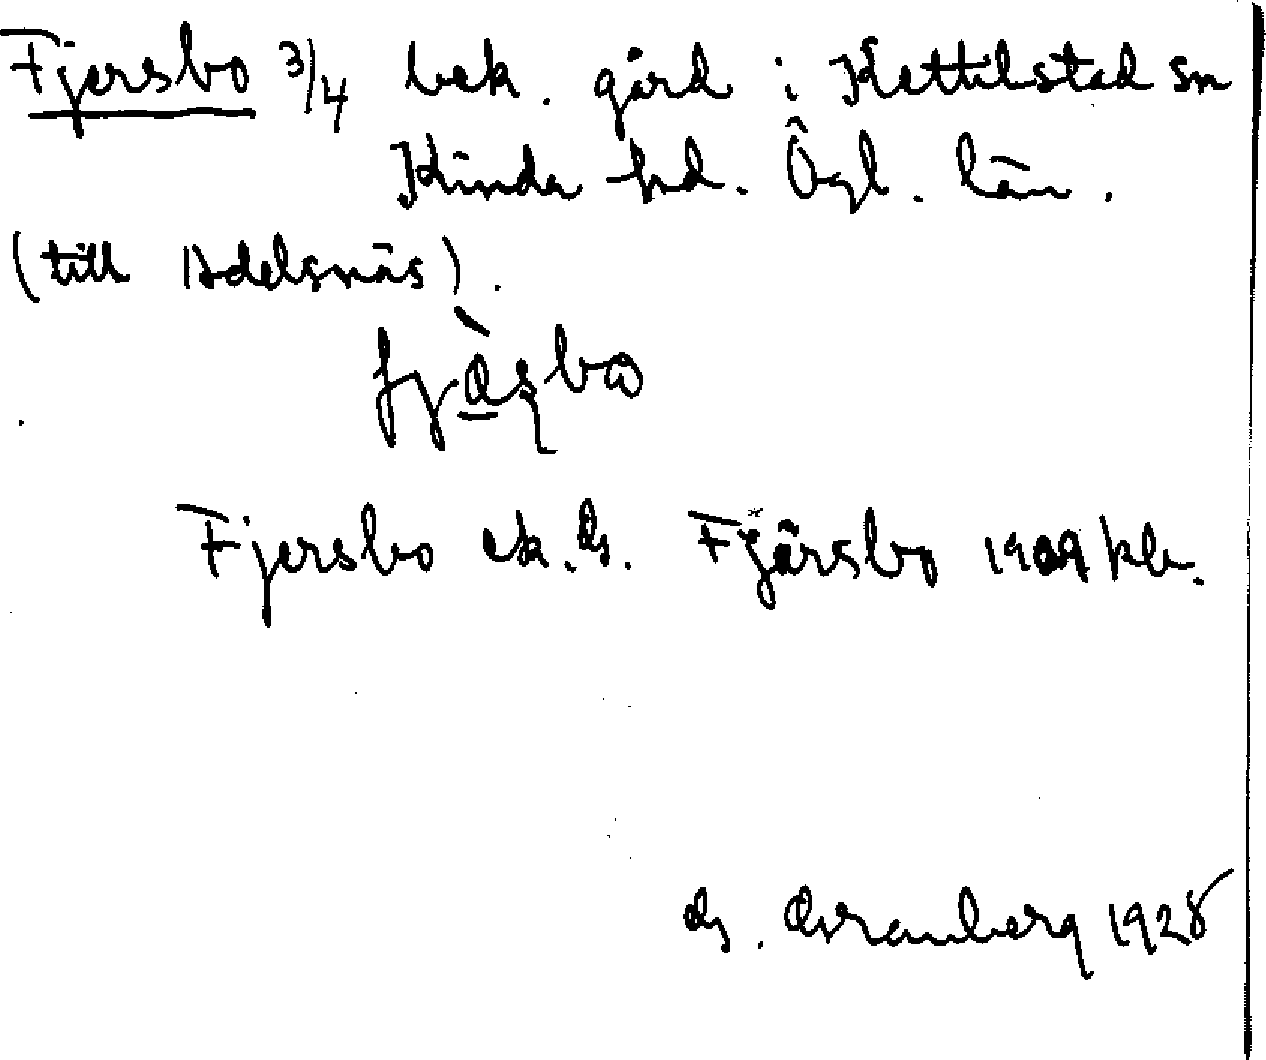 Fjersbo 3/4 bek. gård i Kettilstad sn
Kinda hd. Ögl. län.
(till Adelsnäs).
Fjersbo ek. G. Fjärsbo 1909 kb.
G. Granberg 1928